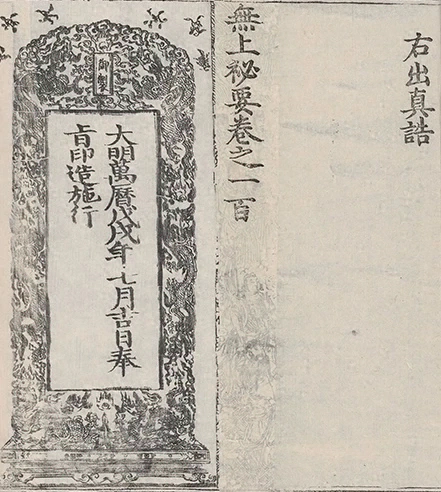 右出真誥
無上祕要卷之一百
御製
大明萬曆戊戌年七月吉日奉
旨印造施行